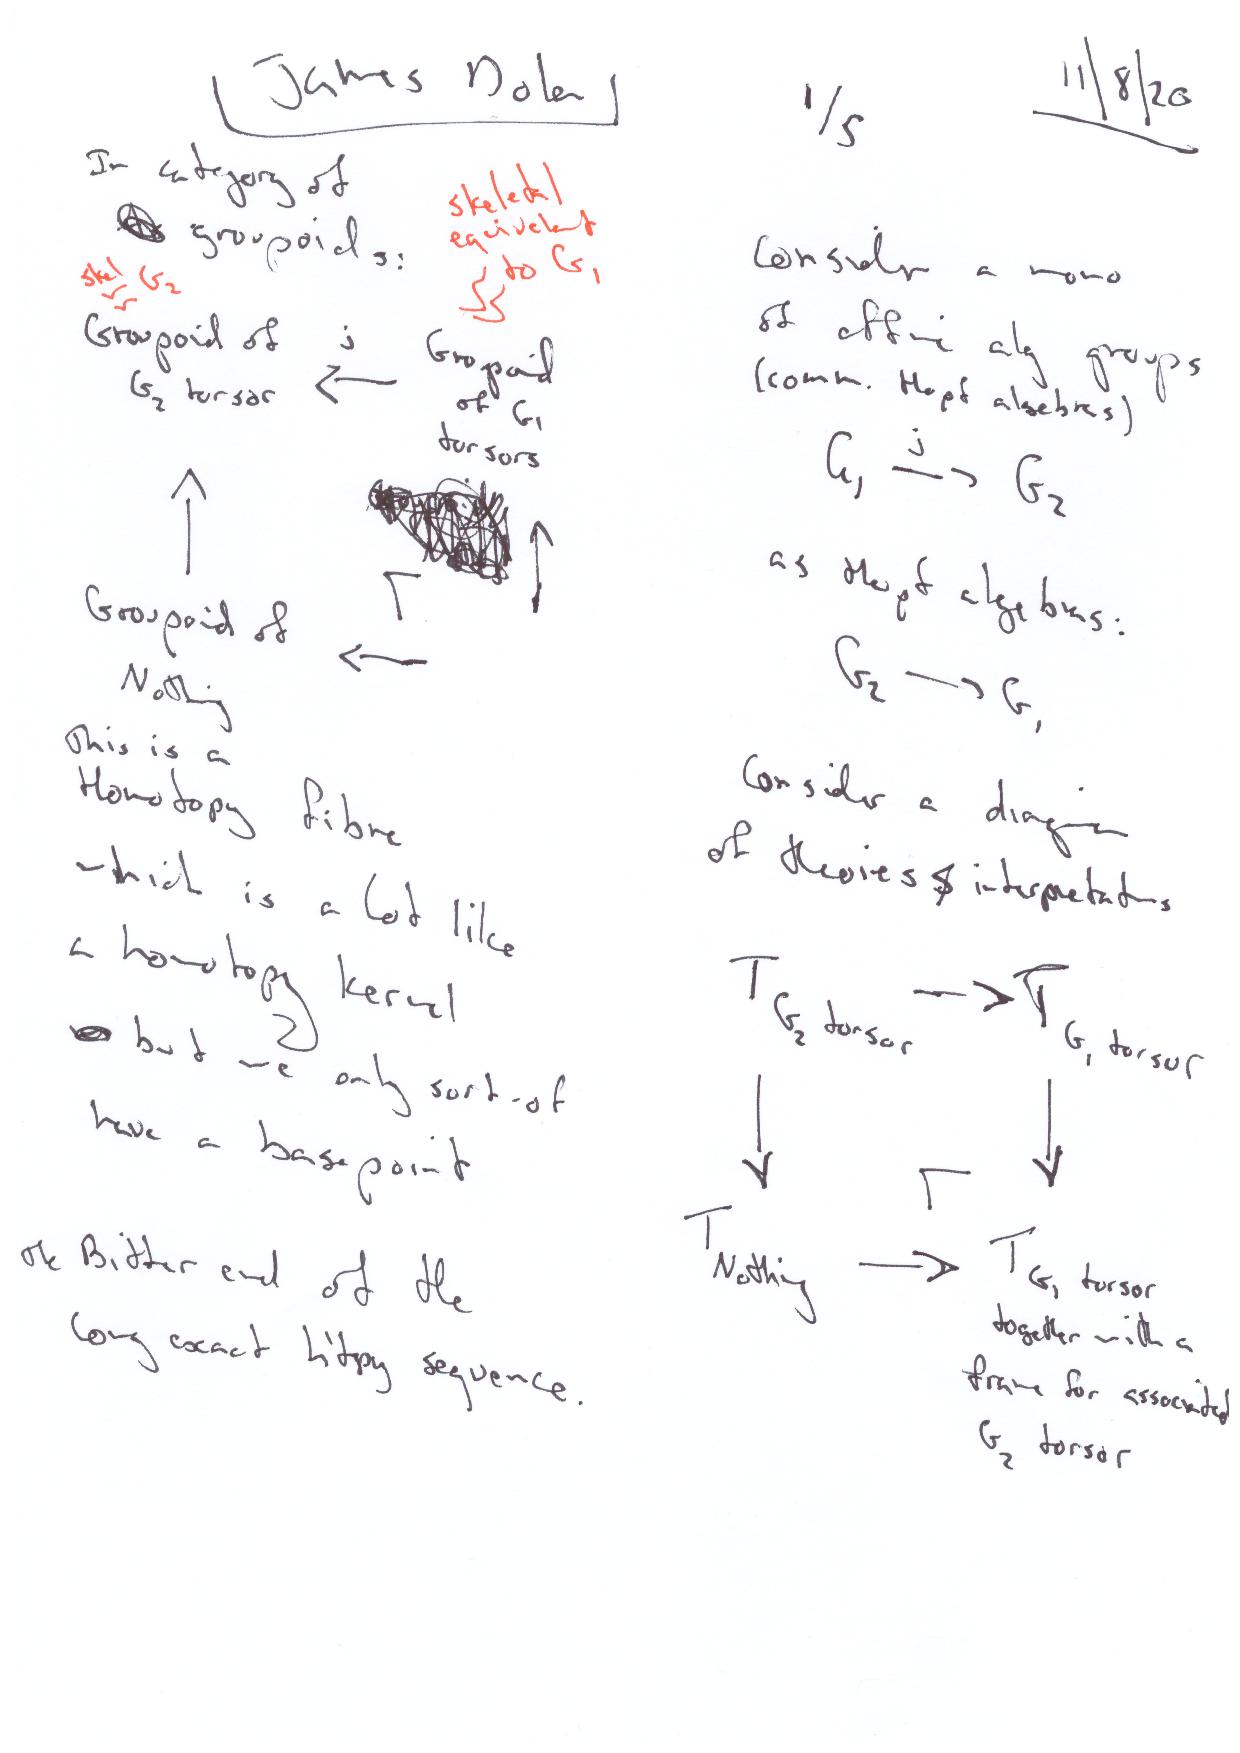 James Dolan
1/5
11/8/20
In category of
groupoids:
skel G2
skeletal
equivalent
to G1
Groupoid of
G2 torsor
j
Groupoid
of G1
torsors
Groupoid of
Nothing
This is a
Homotopy fibre
which is a lot like
a homotopy kernel
but we only sort-of
have a basepoint
The Bitter end of the
long exact htpy sequence.
Consider a mono
of affine alg groups
(comm. Hopf algebras)
G1 j → G2
as Hopf algebras:
G2 → G1
Consider a diagram
of theories & interpretations
T G2 torsor → T G1 torsor
T Nothing → T G1 torsor
together with a
frame for associated
G2 torsor